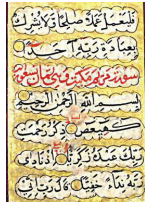 فليعمل عملا صالحا ولا يشرك
بعبادة ربه احدا
سورة مريم مكية وهي ثمان وتسعون
بسم الله الرحمن الرحيم
كهيعص ذكر رحمت
ربك عبده زكريا اذ نادى
ربه نداء خفيا قال رب انى